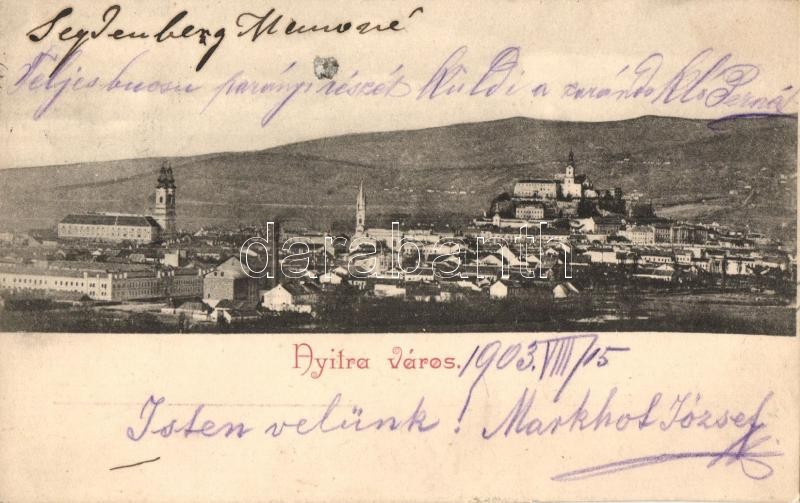 Seydenberg Manoné
Teljes bucsu parányi részét küldi a zarándokló
darabanth
Nyitra város. 1903. VIII/15
Isten velünk! Markhot József